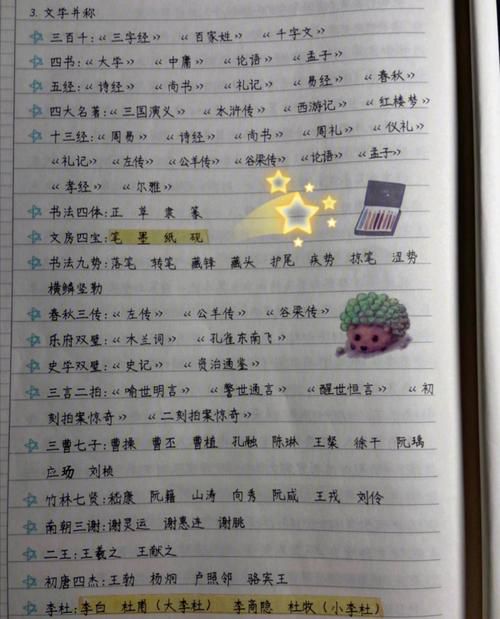 3. 文学并称
三百千:《三字经》 《百家姓》 《千字文》
四书:《大学》 《中庸》 《论语》 《孟子》
五经:《诗经》 《尚书》 《礼记》 《易经》 《春秋》
四大名著:《三国演义》 《水浒传》 《西游记》 《红楼梦》
十三经:《周易》 《诗经》 《尚书》 《周礼》 《仪礼》
《礼记》 《左传》 《公羊传》 《谷梁传》 《论语》 《孟子》
《孝经》 《尔雅》
书法四体:正 草 隶 篆
文房四宝:笔 墨 纸 砚
书法九势:落笔 转笔 藏锋 藏头 护尾 疾势 掠笔 涩势
横鳞坚勒
春秋三传:《左传》 《公羊传》 《谷梁传》
乐府双璧:《木兰词》 《孔雀东南飞》
史学双璧:《史记》 《资治通鉴》
三言二拍:《喻世明言》 《警世通言》 《醒世恒言》 《初
刻拍案惊奇》 《二刻拍案惊奇》
三曹七子:曹操 曹丕 曹植 孔融 陈琳 王粲 徐干 阮瑀
应玚 刘桢
竹林七贤:嵇康 阮籍 山涛 向秀 阮咸 王戎 刘伶
南朝三谢:谢灵运 谢惠连 谢朓
二王:王羲之 王献之
初唐四杰:王勃 杨炯 卢照邻 骆宾王
李杜:李白 杜甫(大李杜) 李商隐 杜牧(小李杜)